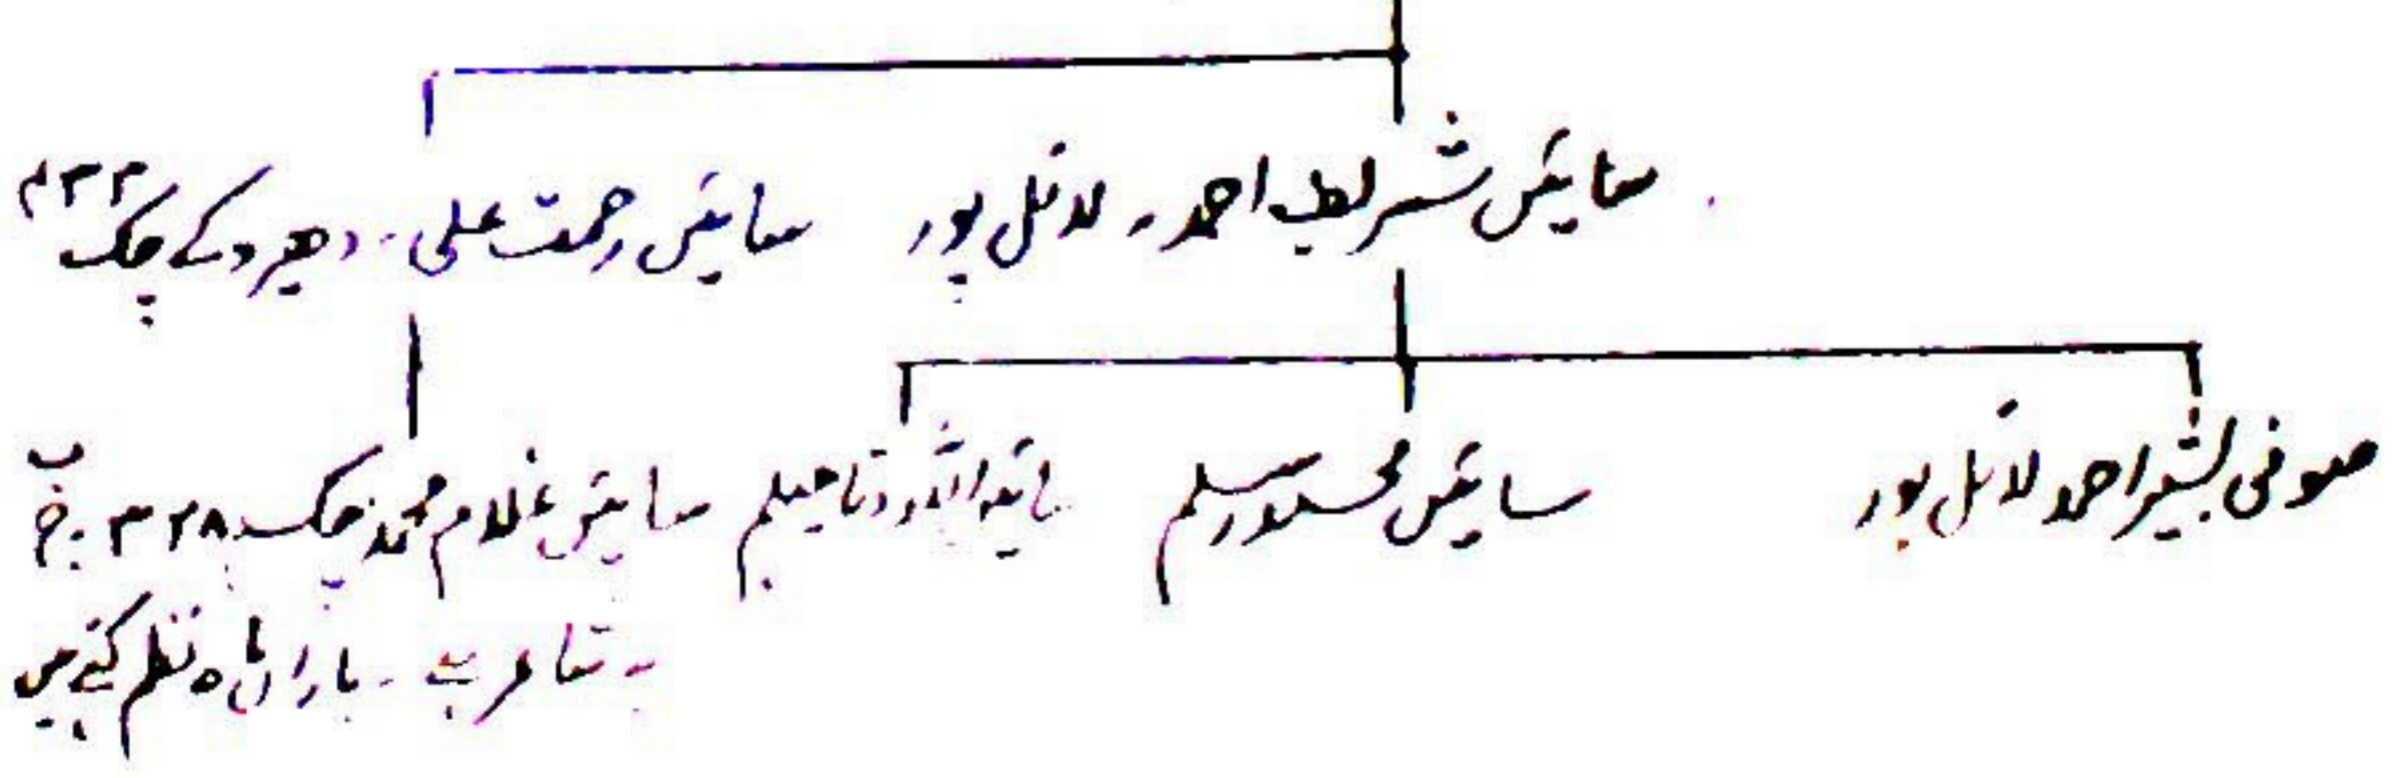 سائیں شریف احمد۔ لائل پور
سائیں رحمت علی۔ دھیروکے چک ۴۳۳
صوفی بشیر احمد لائل پور
سائیں محمد مسلم
سائیں اللہ دتا جہلم
سائیں غلام محمد چک ۳۲۸ ج ب
شاعر ہے۔ باراں ماہ نظم کئے ہیں